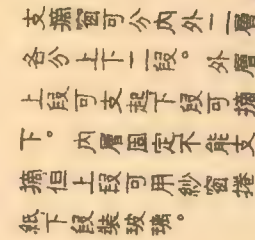 支摘窗可分內外二層
各分上下二段。外層
上段可支起下段可摘
下。內層固定不能支
摘但上段可用紗窗捲
紙下段裝玻璃。